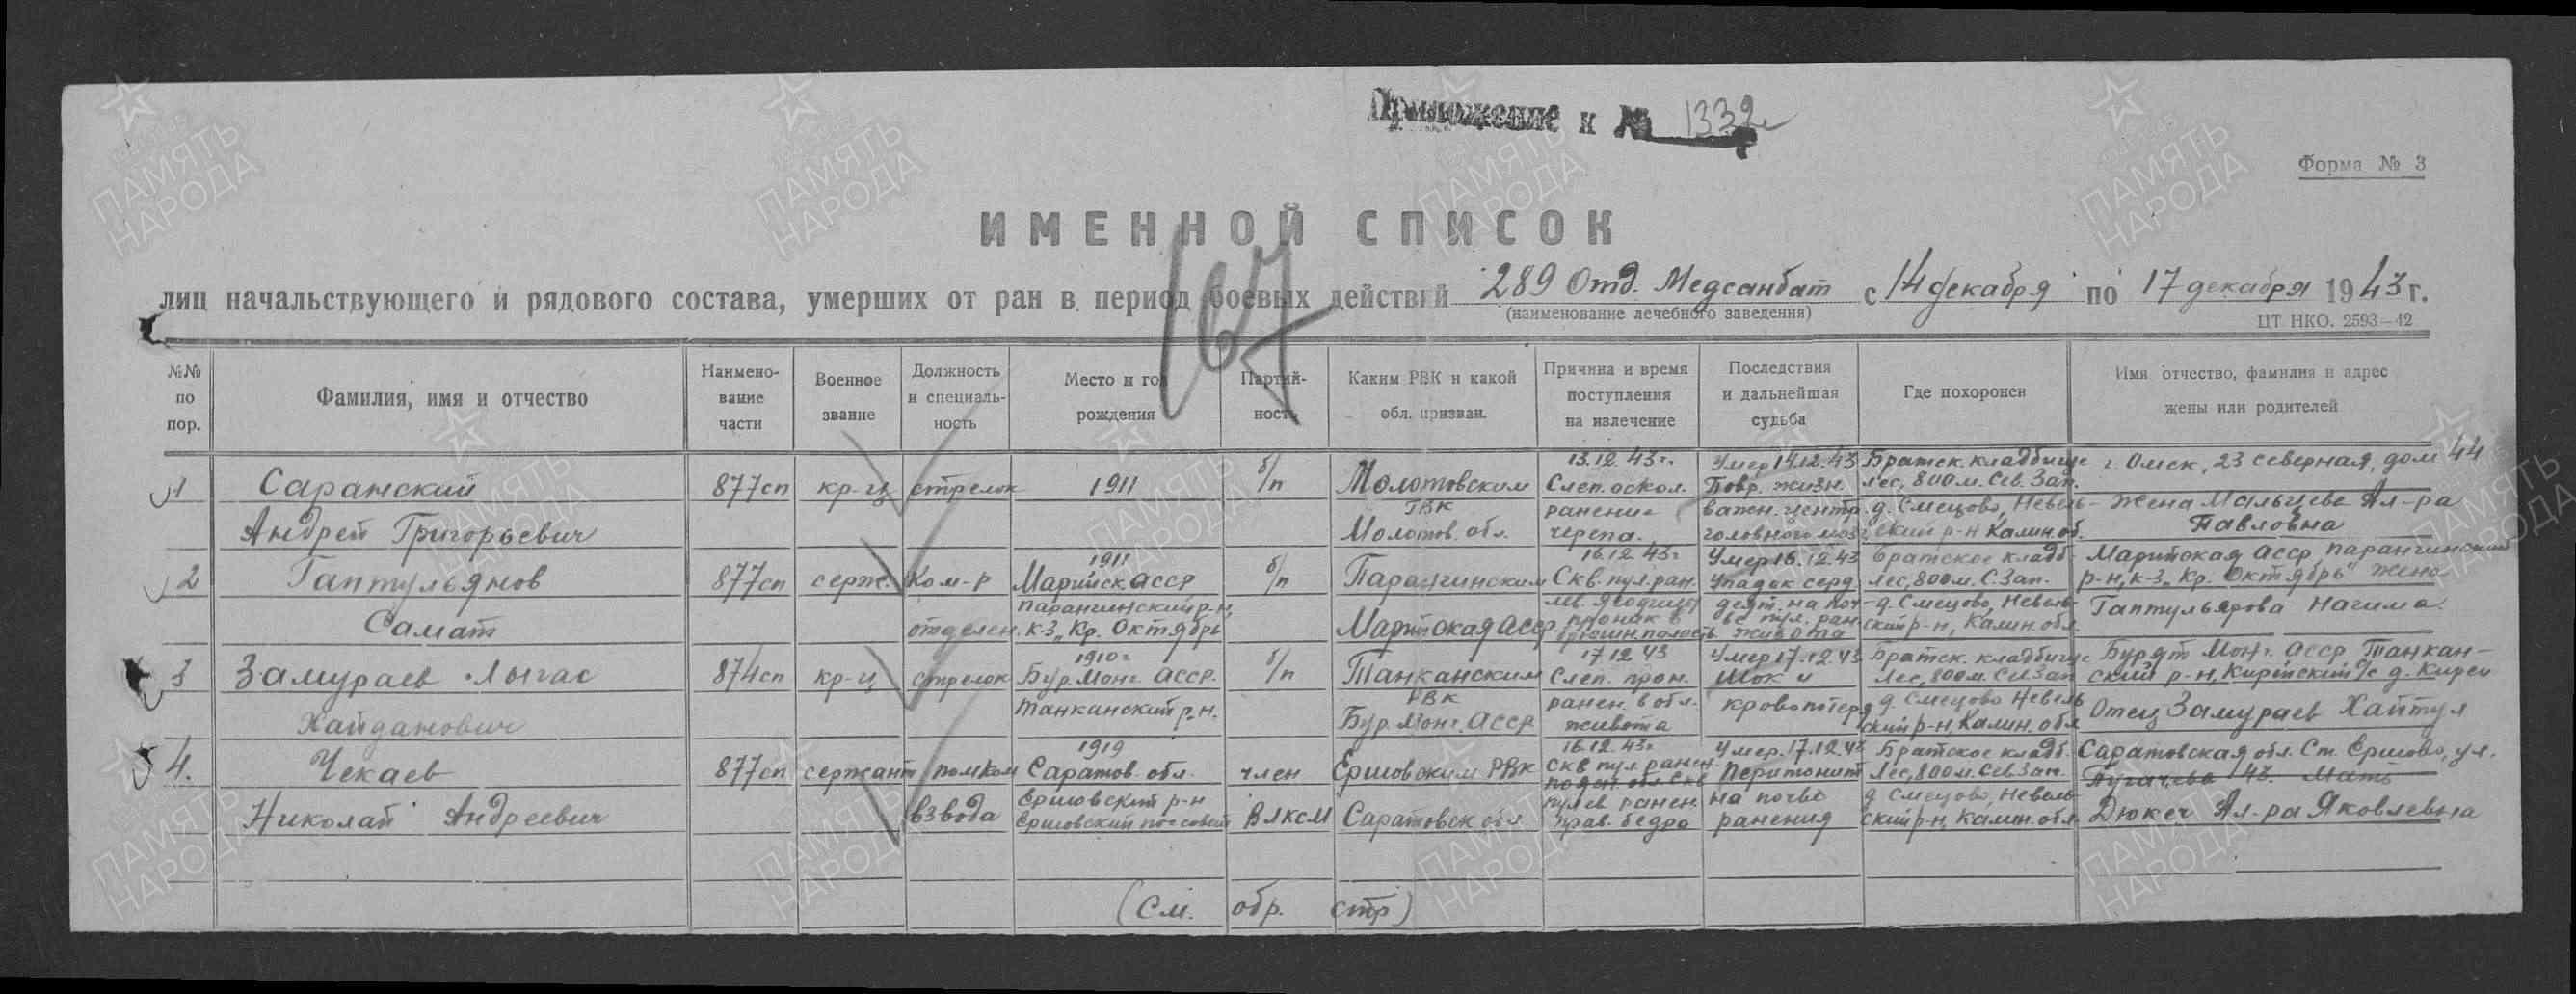 Приложение к № 1332
Форма № 3
ИМЕННОЙ СПИСОК
лиц начальствующего и рядового состава, умерших от ран в период боевых действий 289 Отд. Медсанбат с 14 декабря по 17 декабря 1943 г.
(наименование лечебного заведения)
ЦТ НКО. 2593—42
167
№№ по пор.
Фамилия, имя и отчество
Наименование части
Военное звание
Должность и специальность
Место и год рождения
Партийность
Каким РВК и какой обл. призван.
Причина и время поступления на излечение
Последствия и дальнейшая судьба
Где похоронен
Имя отчество, фамилия и адрес жены или родителей
1 Саранский 877сп кр-ц стрелок 1911 б/п Молотовским 13.12.43г. Слеп. оскол. Умер 14.12.43 Повр. жизн. Братск. кладбище Лес, 800 м. Сев. Зап. г. Омск, 23 северная, дом 44
Андрей Григорьевич ГВК Молотов. обл. ранение черепа. важн. центр. головного моз. д. Смецово, Невельский р-н Калин. об. Жена Мальцева Ал-ра Павловна
2 Гаптульянов 877сп серж. Ком-р 1911 Марийск. АССР б/п Парангинским 16.12.43г Скв. пул. ран. Умер 16.12.43 Упадок серд. братское кладб. Лес, 800 м. С. Зап. Марийская АССР парангинский р-н, к-з „Кр. Октябрь" жена
Самат отделен. парангинский р-н, к-з „Кр. Октябрь Марийская АССР лев. ягодицы проник в брюшн. полость деят. на почве пул. ран. живота д. Смецово, Невельский р-н, Калин. обл. Гаптульярова Нагима.
3 Замураев Лыгас 874сп кр-ц стрелок 1910г Бур. Монг. АССР. б/п Танканским 17.12.43 Слеп. прон. Умер 17.12.43 Шок и Братск. кладбище Лес, 800 м. Сев Зап Бурят Монг. АССР Танканский р-н, Кирейский с/с д. Кирей
Хайданович Танканский р-н. РВК Бур. Монг. АССР ранен. в обл. живота кровопотеря д. Смецово Невельский р-н, Калин. обл Отец Замураев Хайтул
4. Чекаев 877сп сержант помком 1919 Саратов. обл. член Ершовским РВК 16.12.43г. Скв пул ранен. Умер. 17.12.43 Перитонит Братское кладб. Лес, 800 м. Сев. Зап. Саратовская обл. Ст. Ершово, ул. Пугачева 43. Мать
Николай Андреевич взвода Ершовский р-н Ершовский поссовет ВЛКСМ Саратовск обл. пулев ранен. прав. бедра на почве ранения д Смецово, Невельский р-н, Калин. обл. Дюкеч Ал-ра Яковлевна
(См. обр. стр)
ПАМЯТЬ НАРОДА